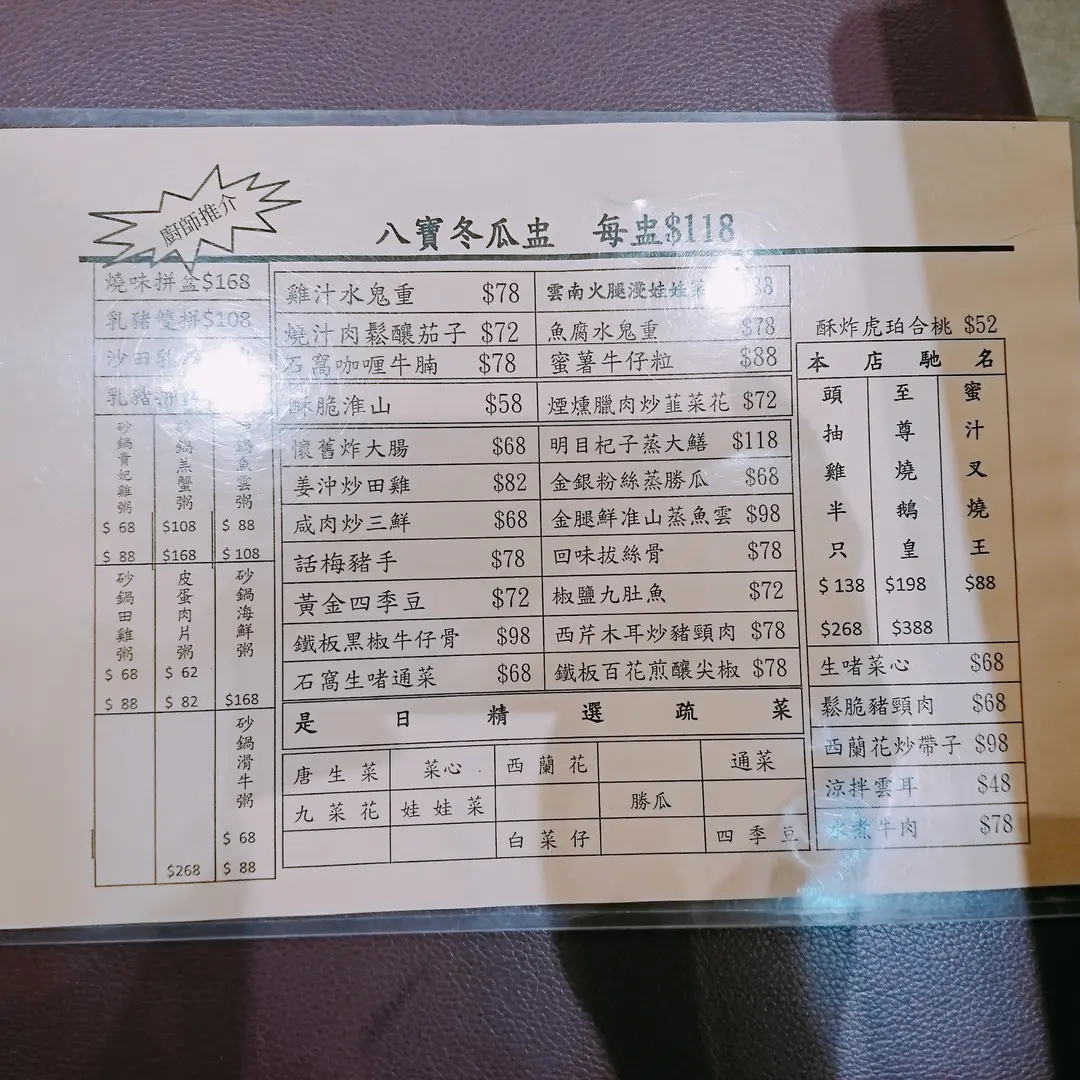 廚師推介
八寶冬瓜盅 每盅$118
燒味拼盆$168
乳豬雙拼$108
沙田乳
乳豬拼
砂鍋貴妃雞粥 $68 $88
砂鍋羔蟹粥 $108 $168
鍋魚雲粥 $88 $108
砂鍋田雞粥 $68 $88
皮蛋肉片粥 $62 $82
砂鍋海鮮粥 $168
$268
砂鍋滑牛粥 $68 $88
雞汁水鬼重 $78
雲南火腿浸娃娃菜
燒汁肉鬆釀茄子 $72
魚腐水鬼重 $78
石窩咖喱牛腩 $78
蜜薯牛仔粒 $88
酥脆淮山 $58
煙燻臘肉炒韮菜花 $72
懷舊炸大腸 $68
明目杞子蒸大鱔 $118
姜沖炒田雞 $82
金銀粉絲蒸勝瓜 $68
咸肉炒三鮮 $68
金腿鮮准山蒸魚雲 $98
話梅豬手 $78
回味拔絲骨 $78
黃金四季豆 $72
椒鹽九肚魚 $72
鐵板黑椒牛仔骨 $98
西芹木耳炒豬頸肉 $78
石窩生啫通菜 $68
鐵板百花煎釀尖椒 $78
是日精選疏菜
唐生菜 菜心 西蘭花 通菜
九菜花 娃娃菜 勝瓜
白菜仔 四季豆
酥炸虎珀合桃 $52
本店馳名
頭抽雞半只 $138 $268
至尊燒鵝皇 $198 $388
蜜汁叉燒王 $88
生啫菜心 $68
鬆脆豬頸肉 $68
西蘭花炒帶子 $98
涼拌雲耳 $48
水煮牛肉 $78